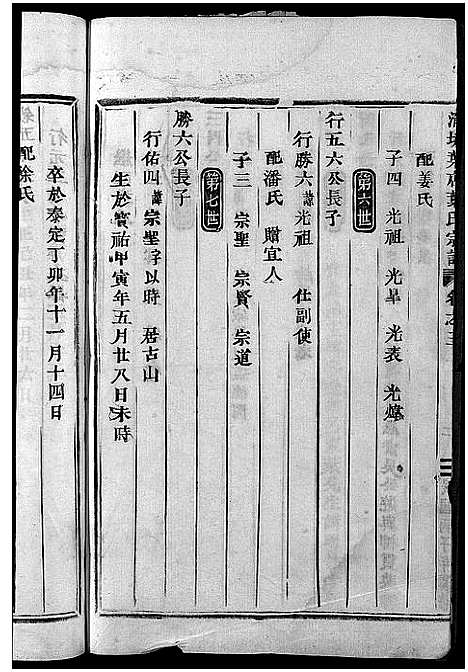 氏宗譜 卷之三
配姜氏
子四 光祖 光旱 光表 光煒
第六世
行五六公長子
行勝六諱光祖 仕副使
配潘氏 贈宜人
子三 宗聖 宗賢 宗道
第七世
勝六公長子
行佑四諱宗聖字以時 居古山
生於寶祐甲寅年五月廿八日未時
卒於泰定丁卯年十一月十四日
配徐氏